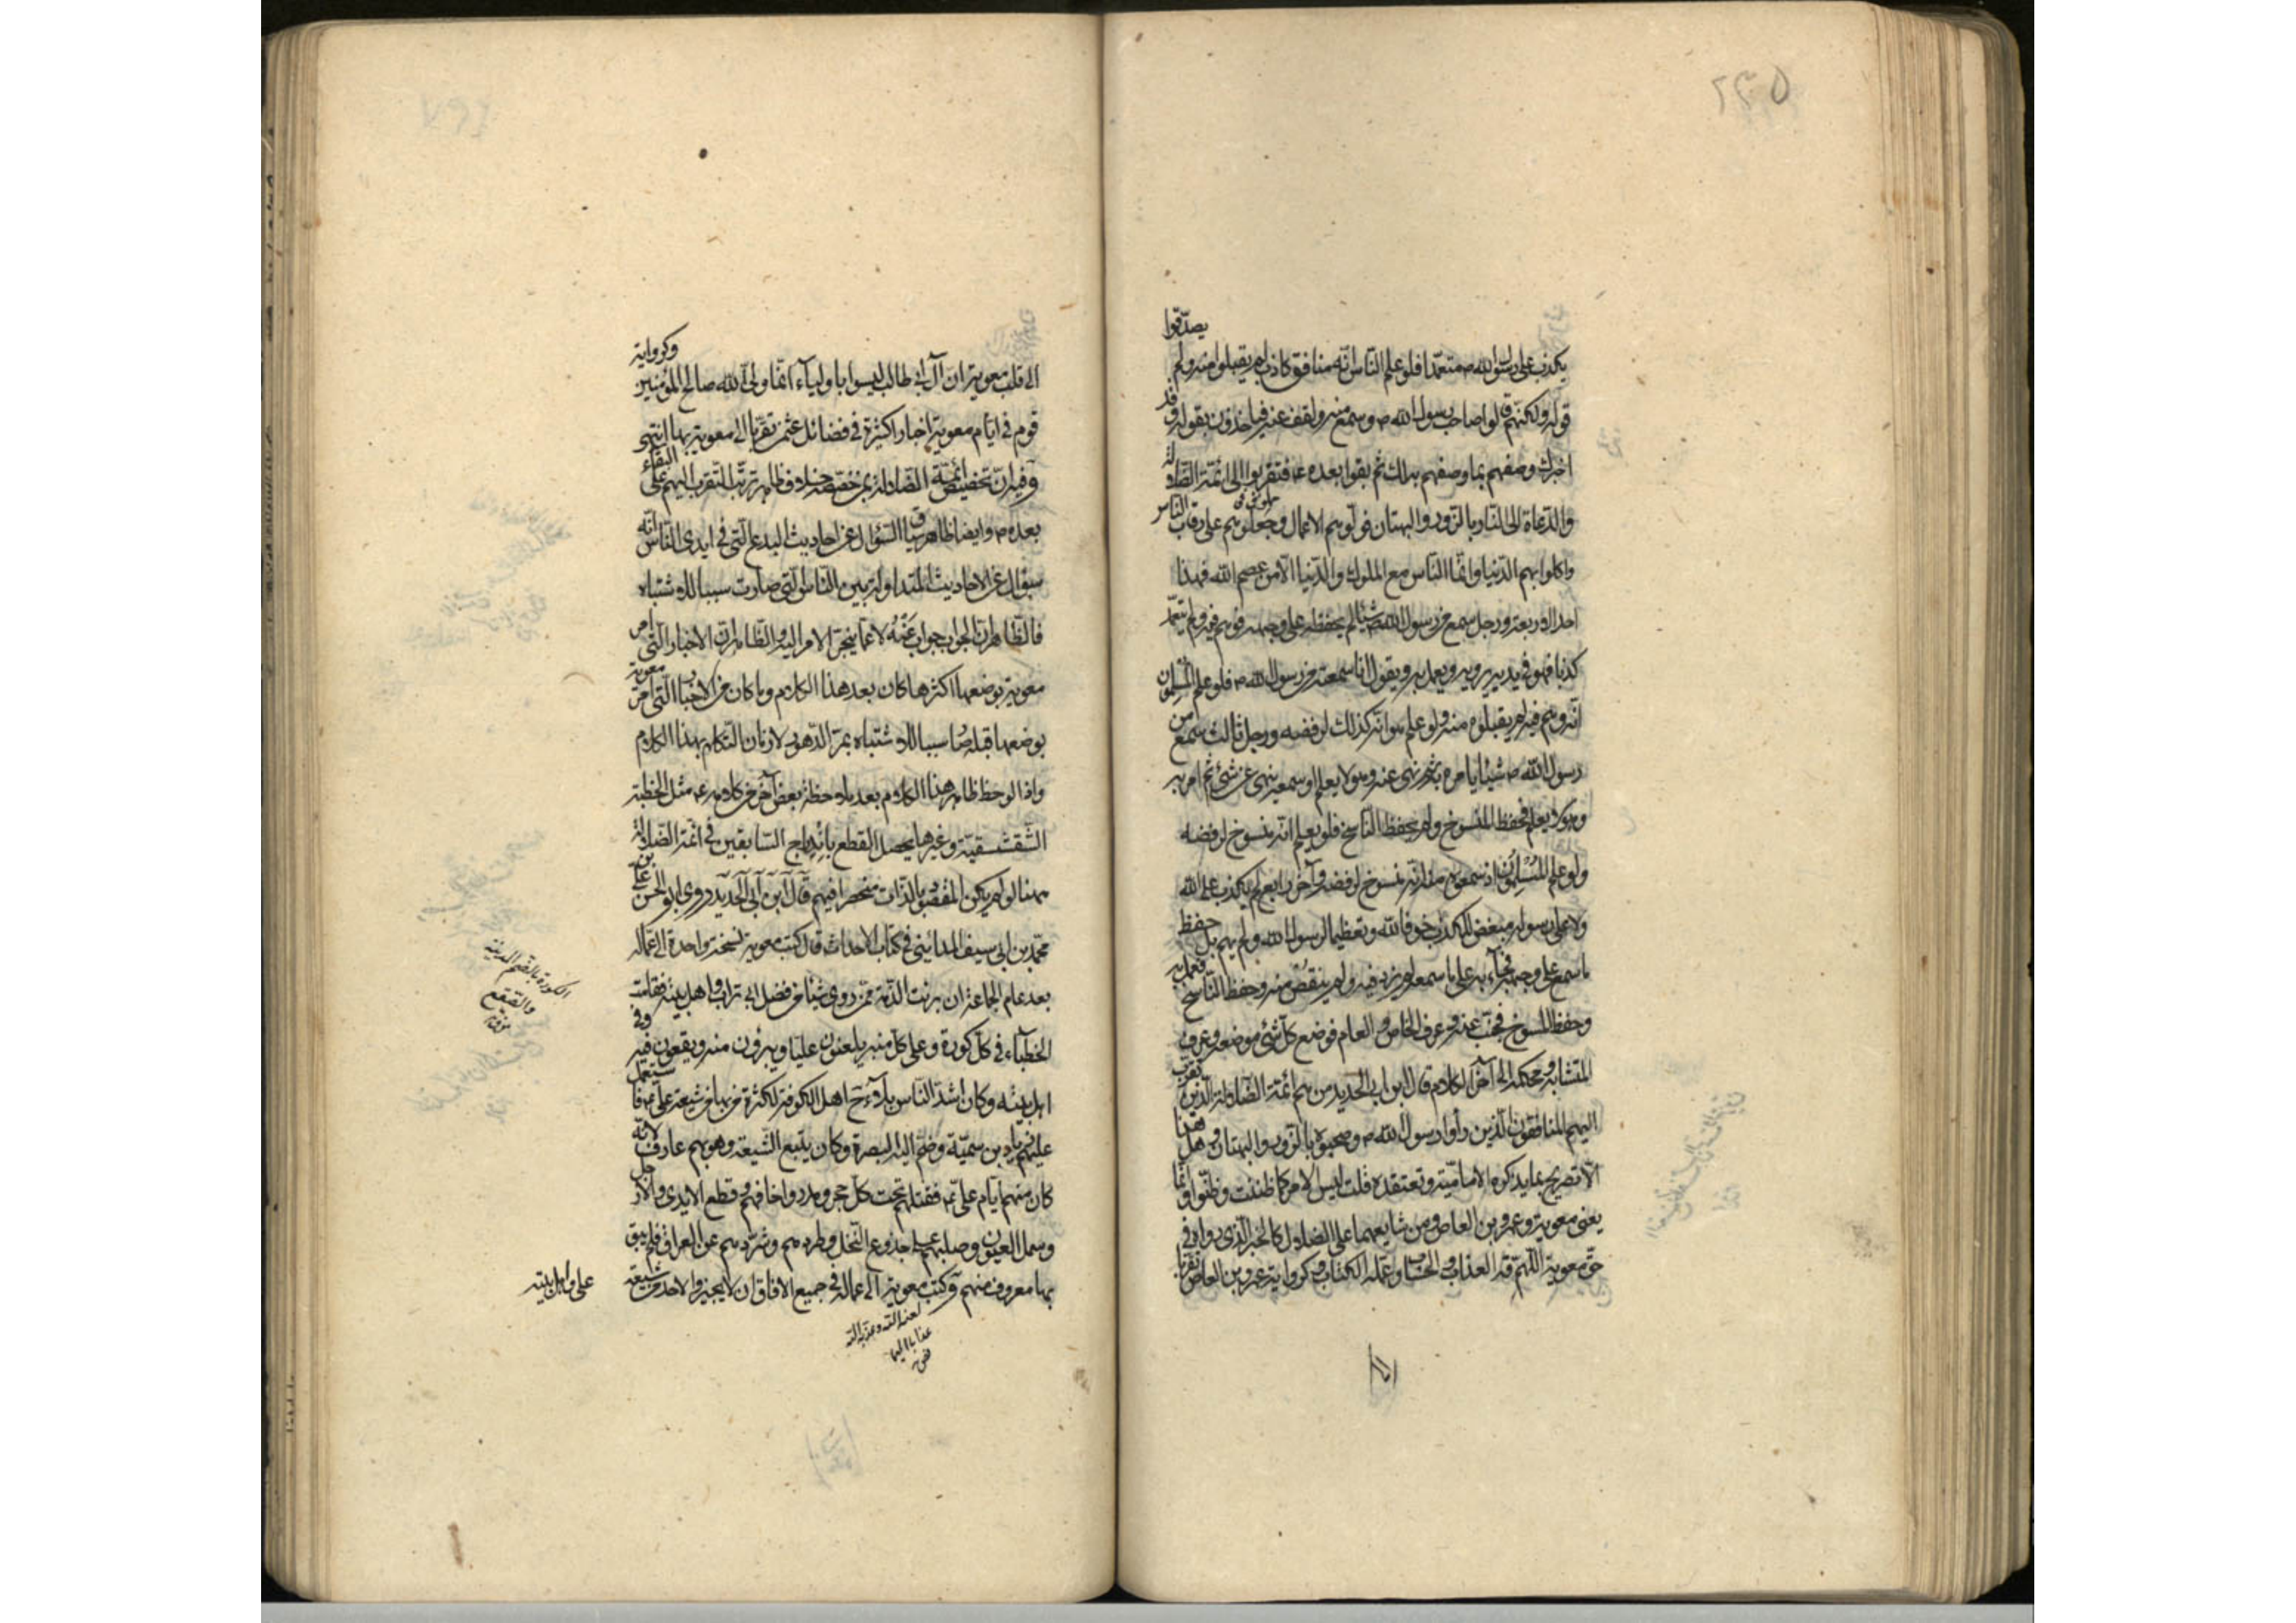 ٢٣٥
يكذب على رسول الله ص متعمّدا فلو علم النّاس انّه منافق كاذب لم يقبلوا منه ولم يصدّقوا
قوله ولكنّهم قالوا صاحب رسول الله ص وسمع منه ولقف عنه فياخذون بقوله وقد
اخبرك وصفهم بما وصفهم به لك ثم بقوا بعده ع فتقربوا الى ائمّة الضّلالة
والدّعاة الى النّار بالزّور والبهتان فولّوهم الاعمال وجعلوهم على رقاب النّاس
واكلوا بهم الدّنيا وانّما النّاس مع الملوك والدّنيا الّا من عصم الله فهذا
احد الاربعة ورجل سمع من رسول الله ص شيئا لم يحفظه على وجهه فوهم فيه ولم يتعمّد
كذبا فهو في يديه يرويه ويعمل به ويقول انا سمعته من رسول الله ص فلو علم المسلمون
انّه وهم فيه لم يقبلوه منه ولو علم هو انّه كذلك لرفضه ورجل ثالث سمع من
رسول الله ص شيئا يامر به ثم نهى عنه وهو لا يعلم او سمعه ينهى عن شئ ثم امر به
وهو لا يعلم فحفظ المنسوخ ولم يحفظ النّاسخ فلو يعلم انّه منسوخ لرفضه
ولو علم المسلمون اذ سمعوه منه انّه منسوخ لرفضوه وآخر رابع لم يكذب على الله
ولا على رسوله مبغض للكذب خوفا لله وتعظيما لرسول الله ولم يهم بل حفظ
ما سمع على وجهه فجاء به على ما سمعه لم يزد فيه ولم ينقص منه وحفظ النّاسخ فعمل به
وحفظ المنسوخ فجنّب عنه وعرف الخاص والعام فوضع كلّ شئ موضعه وعرف
المتشابه ومحكمه الى آخر الكلام قال ابن ابى الحديد من هم ائمّة الضّلالة الّذين تقرّب
اليهم المنافقون الّذين رأوا رسول الله ص وصحبوه بالزّور والبهتان وهل هذا
الّا تصريح بما يذكره الاماميّة وتعتقده قلت ليس الامر كما ظننت وظنّوا وانّما
يعنى معوية وعمرو بن العاص ومن شايعهما على الضلال كالخبر الّذى رواه في
حقّ معوية اللّهم قه العذاب والحساب وعلّمه الكتاب وكرواية عمرو بن العاص تقرّبا
الى قلب معوية ان آل ابى طالب ليسوا باولياء انّما وليّى الله وصالح المؤمنين وكرواية
قوم في ايّام معوية اخبارا كثيرة في فضائل عثمن تقرّبا الى معوية بها انتهى
وفيه انّ تخصيص ائمّة الضّلالة بمن خصّصه خلاف ظاهر ترتّب التّقرب اليهم على البقاء
بعده ص وايضا ظاهر سياق السّؤال عن احاديث البدع الّتي في ايدى النّاس انّه
سؤال عن الاحاديث المتداولة بين النّاس الّتي صارت سببا للاشتباه
فالظّاهر انّ الجواب جواب عنه لا عمّا ينجرّ الامر اليه والظّاهر انّ الاخبار الّتي امر
معوية بوضعها اكثرها كان بعد هذا الكلام وما كان من الاخبار الّتي امر معوية
بوضعها قبله صار سببا للاشتباه بمرّ الدّهور لا زمان التّكلم بهذا الكلام
واذا لوحظ ظاهر هذا الكلام بعد ملاحظة بعض آخر من كلامه ع مثل الخطبة
الشّقشقيّة وغيرها يحصل القطع باندراج السّابقين في ائمّة الضّلالة
ههنا لو لم يكن المقصود بالذّات منحصرا فيهم قال ابن ابى الحديد روى ابو الحسن علىّ بن
محمّد بن ابى سيف المدائنى في كتاب الاحداث قال كتب معوية نسخة واحدة الى عمّاله
بعد عام الجماعة ان برئت الذّمة ممّن روى شيئا من فضل ابى تراب واهل بيته فقامت
الخطباء في كلّ كورة وعلى كلّ منبر يلعنون عليّا ويبرؤن منه ويقعون فيه وفي
اهل بيته وكان اشدّ النّاس بلاء ح اهل الكوفة لكثرة من بها من شيعة على ع فاستعمل
عليهم زياد بن سميّة وضمّ اليه البصرة وكان يتبع الشّيعة وهو بهم عارف لانّه
كان منهم ايّام على ع فقتلهم تحت كلّ حجر ومدر واخافهم وقطع الايدى والارجل
وسمل العيون وصلبهم على جذوع النّخل وطردهم وشرّدهم عن العراق فلم يبق
بها معروف منهم وكتب معوية الى عمّاله في جميع الافاق ان لا يجيزوا لاحد من شيعة
على واهل بيته
الكورة بالضّم المدينة
والصّقع
لعنه الله وعذّبه الله
عذابا اليما